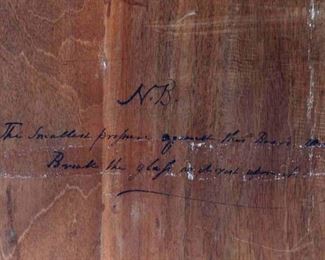 N.B.
The Smallest pressure against this Board will
Break the glass